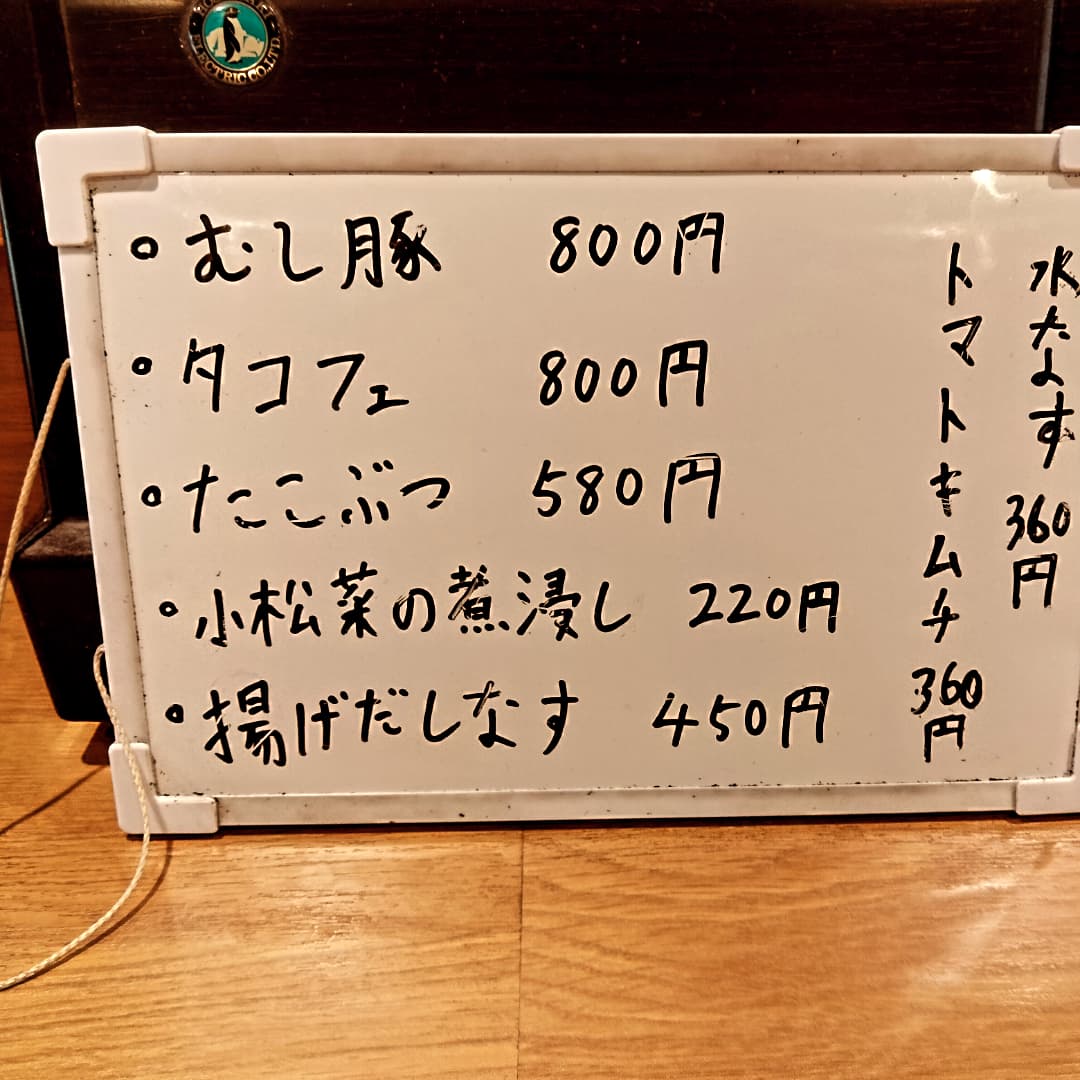 ELECTRIC CO.,LTD.
○むし豚 800円
○タコフェ 800円
○たこぶつ 580円
○小松菜の煮浸し 220円
○揚げだしなす 450円
水なす 360円
トマトキムチ 360円